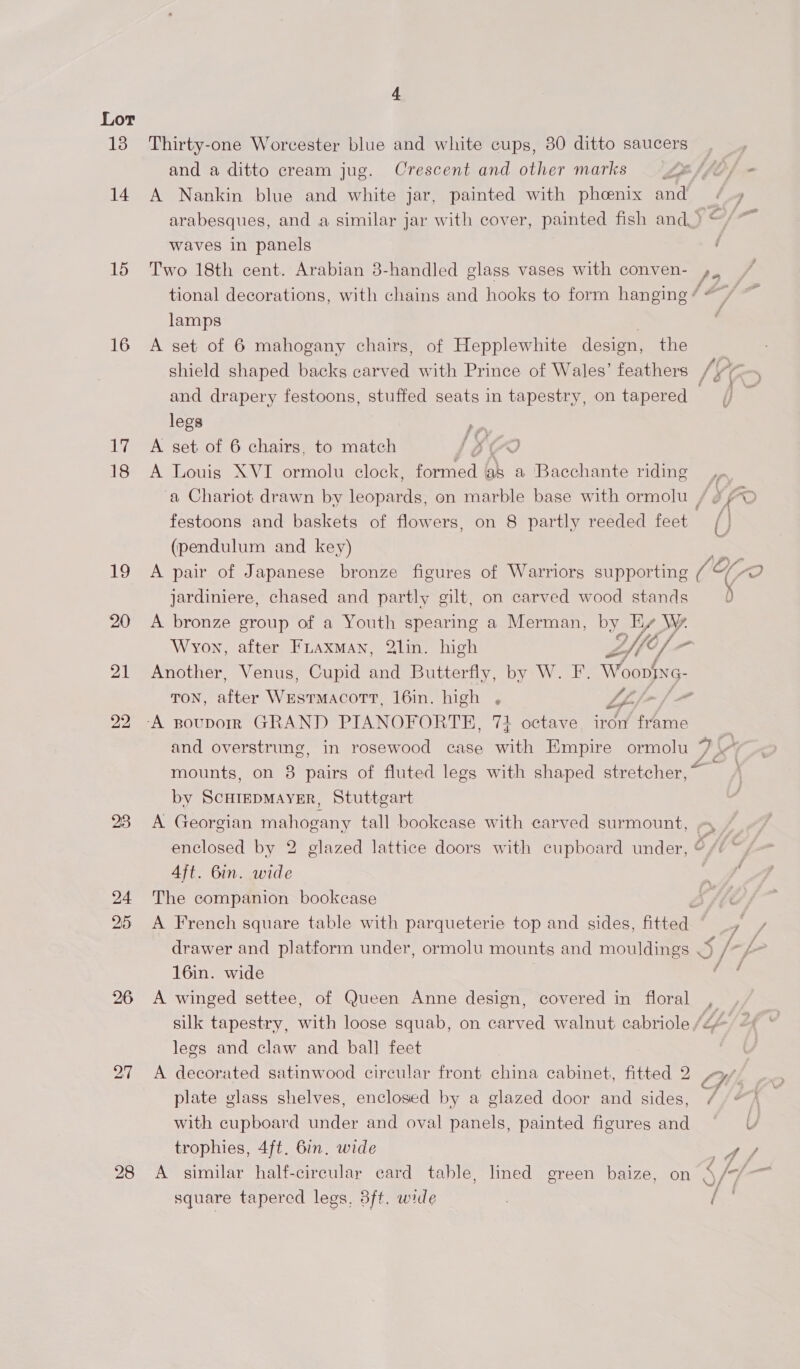 4
Lot
13 Thirty-one Worcester blue and white cups, 30 ditto saucers
and a ditto cream jug. Crescent and other marks
14 A Nankin blue and white jar, painted with phœnix and
arabesques, and a similar jar with cover, painted fish and
waves in panels
15 Two 18th cent. Arabian 3-handled glass vases with conven-
tional decorations, with chains and hooks to form hanging
lamps
16 A set of 6 mahogany chairs, of Hepplewhite design, the
shield shaped backs carved with Prince of Wales' feathers
and drapery festoons, stuffed seats in tapestry, on tapered
legs
17 A set of 6 chairs, to match
18 A Louis XVI ormolu clock, formed as a Bacchante riding
a Chariot drawn by leopards, on marble base with ormolu
festoons and baskets of flowers, on 8 partly reeded feet
(pendulum and key)
19 A pair of Japanese bronze figures of Warriors supporting
jardiniere, chased and partly gilt, on carved wood stands
20 A bronze group of a Youth spearing a Merman, by E. W.
Wyon, after Flaxman, 21in. high
21 Another, Venus, Cupid and Butterfly, by W. F. Wooding-
ton, after Westmacott, 16in. high
22 A boudoir GRAND PIANOFORTE, 7¼ octave iron frame
and overstrung, in rosewood case with Empire ormolu
mounts, on 3 pairs of fluted legs with shaped stretcher,
by Schiedmayer, Stuttgart
23 A Georgian mahogany tall bookcase with carved surmount,
enclosed by 2 glazed lattice doors with cupboard under,
4ft. 6in. wide
24 The companion bookcase
25 A French square table with parqueterie top and sides, fitted
drawer and platform under, ormolu mounts and mouldings
16in. wide
26 A winged settee, of Queen Anne design, covered in floral
silk tapestry, with loose squab, on carved walnut cabriole
legs and claw and ball feet
27 A decorated satinwood circular front china cabinet, fitted 2
plate glass shelves, enclosed by a glazed door and sides,
with cupboard under and oval panels, painted figures and
trophies, 4ft. 6in. wide
28 A similar half-circular card table, lined green baize, on
square tapered legs, 3ft. wide